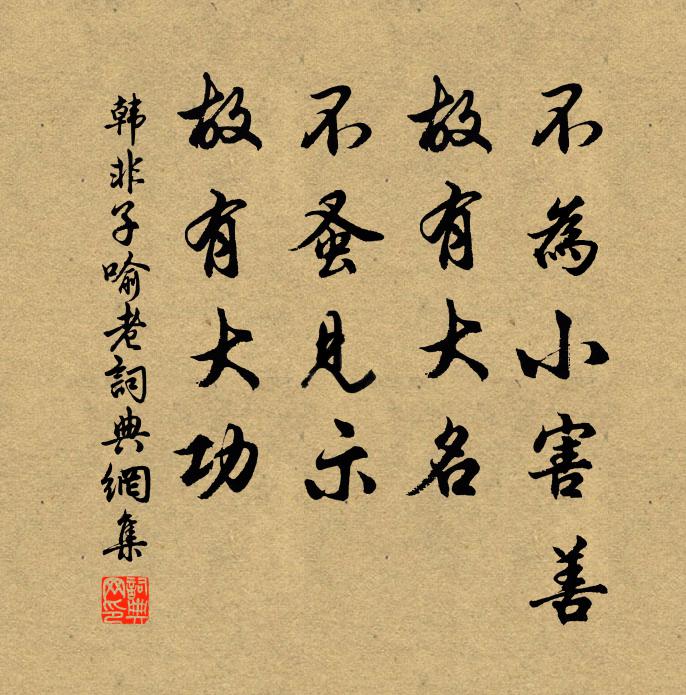 不為小害善
故有大名
不蚤見示
故有大功
韩非子喻老詞典網集
詞典
网印